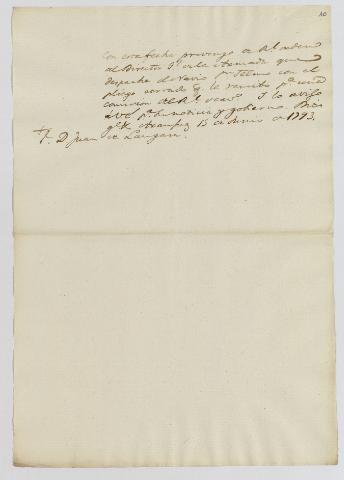 10
Con esta fecha prevengo de Rl orden
al Director Gl de la Armada que
despache el Navio Sn Telmo con el
pliego cerrado q. le remito pa una
comision del Rl serv. Y lo aviso
a V.E. pa su noticia y gobierno. Dios
gue Aranjuez 13 de Junio de 1793.
Sr. D. Juan de Langara.